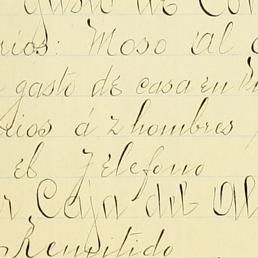 gasto de Co
rios: Moso al
gasto de casa en
rios á 2 hombres
el Jelefono
r Caja del Al
Remitido